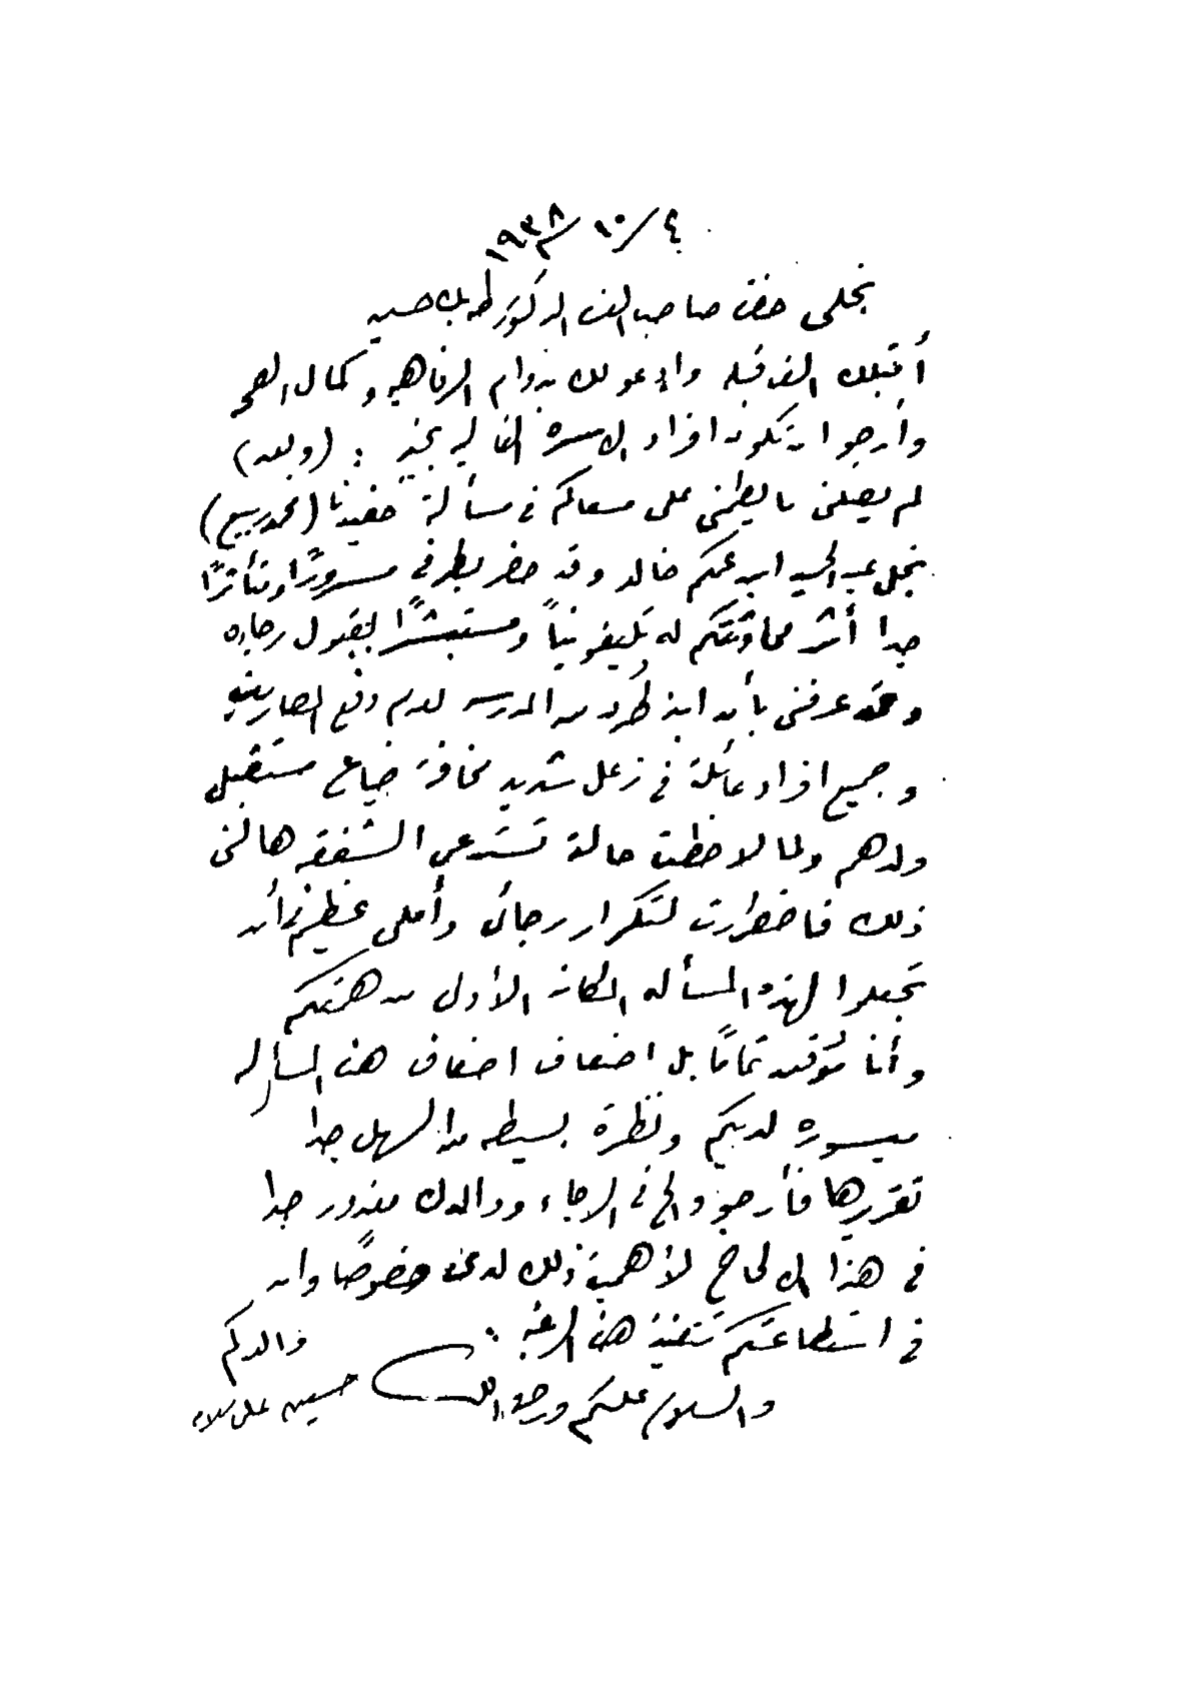 ٤/١٠/١٩٣٨
نجلى حضرة صاحب العزه الدكتور طه بك حسين
أقبلك الف قبله وادعو لك بدوام الرفاهيه وكمال الصحه
وأرجوا ان تكون افراد الاسره الغاليه بخير : (وبعد)
لم يصلنى ما يطمنى على مسعاكم فى مسألة حفيدنا (محمد ربيع)
نجل عبد الحميد ابن عمكم خالد وقد حضر بطرفى مسرورًا ومتأثرًا
جدا أثر محادثتكم له تليفونياً ومستبشرًا بقبول رجاءه
وقد عرفنى بأن ابنه طُرد من المدرسه لعدم دفع المصاريف
وجميع افراد عائلته فى زعل شديد مخافة ضياع مستقبل
ولدهم ولما لاحظت حالة تستدعى الشفقه هالنى
ذلك فاضطرارت لتكرار رجائى وأملى عظيم أن
تجعلوا لهذه المسأله المكان الأول من همتكم
وأنا مؤقن تمامًا بل اضعاف اضعاف هذه المسأله
ميسوره لديكم ونظرة بسيطه من السهل جدا
تقرريها فأرجو والح فى الرجاء ووالدك معذور جدا
فى هذا الالحاح لأهمية ذلك لدىّ خصوصًا وان
فى استطاعتكم تنفيذ هذه الرغبه .
والسلام عليكم ورحمة الله
والدكم
حسين على سلامه